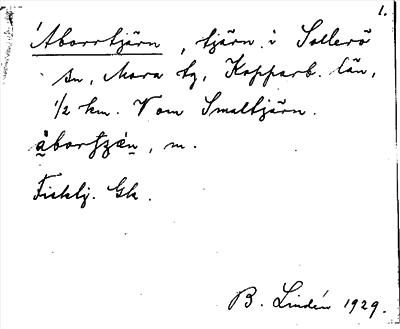 1.
Aborrtjärn, tjärn i Sollerö
sn, Mora tg, Kopparb. län,
1/2 km. V om Smaltjärn.
m.
Fisklj. Gk.
B. Lindén 1929.